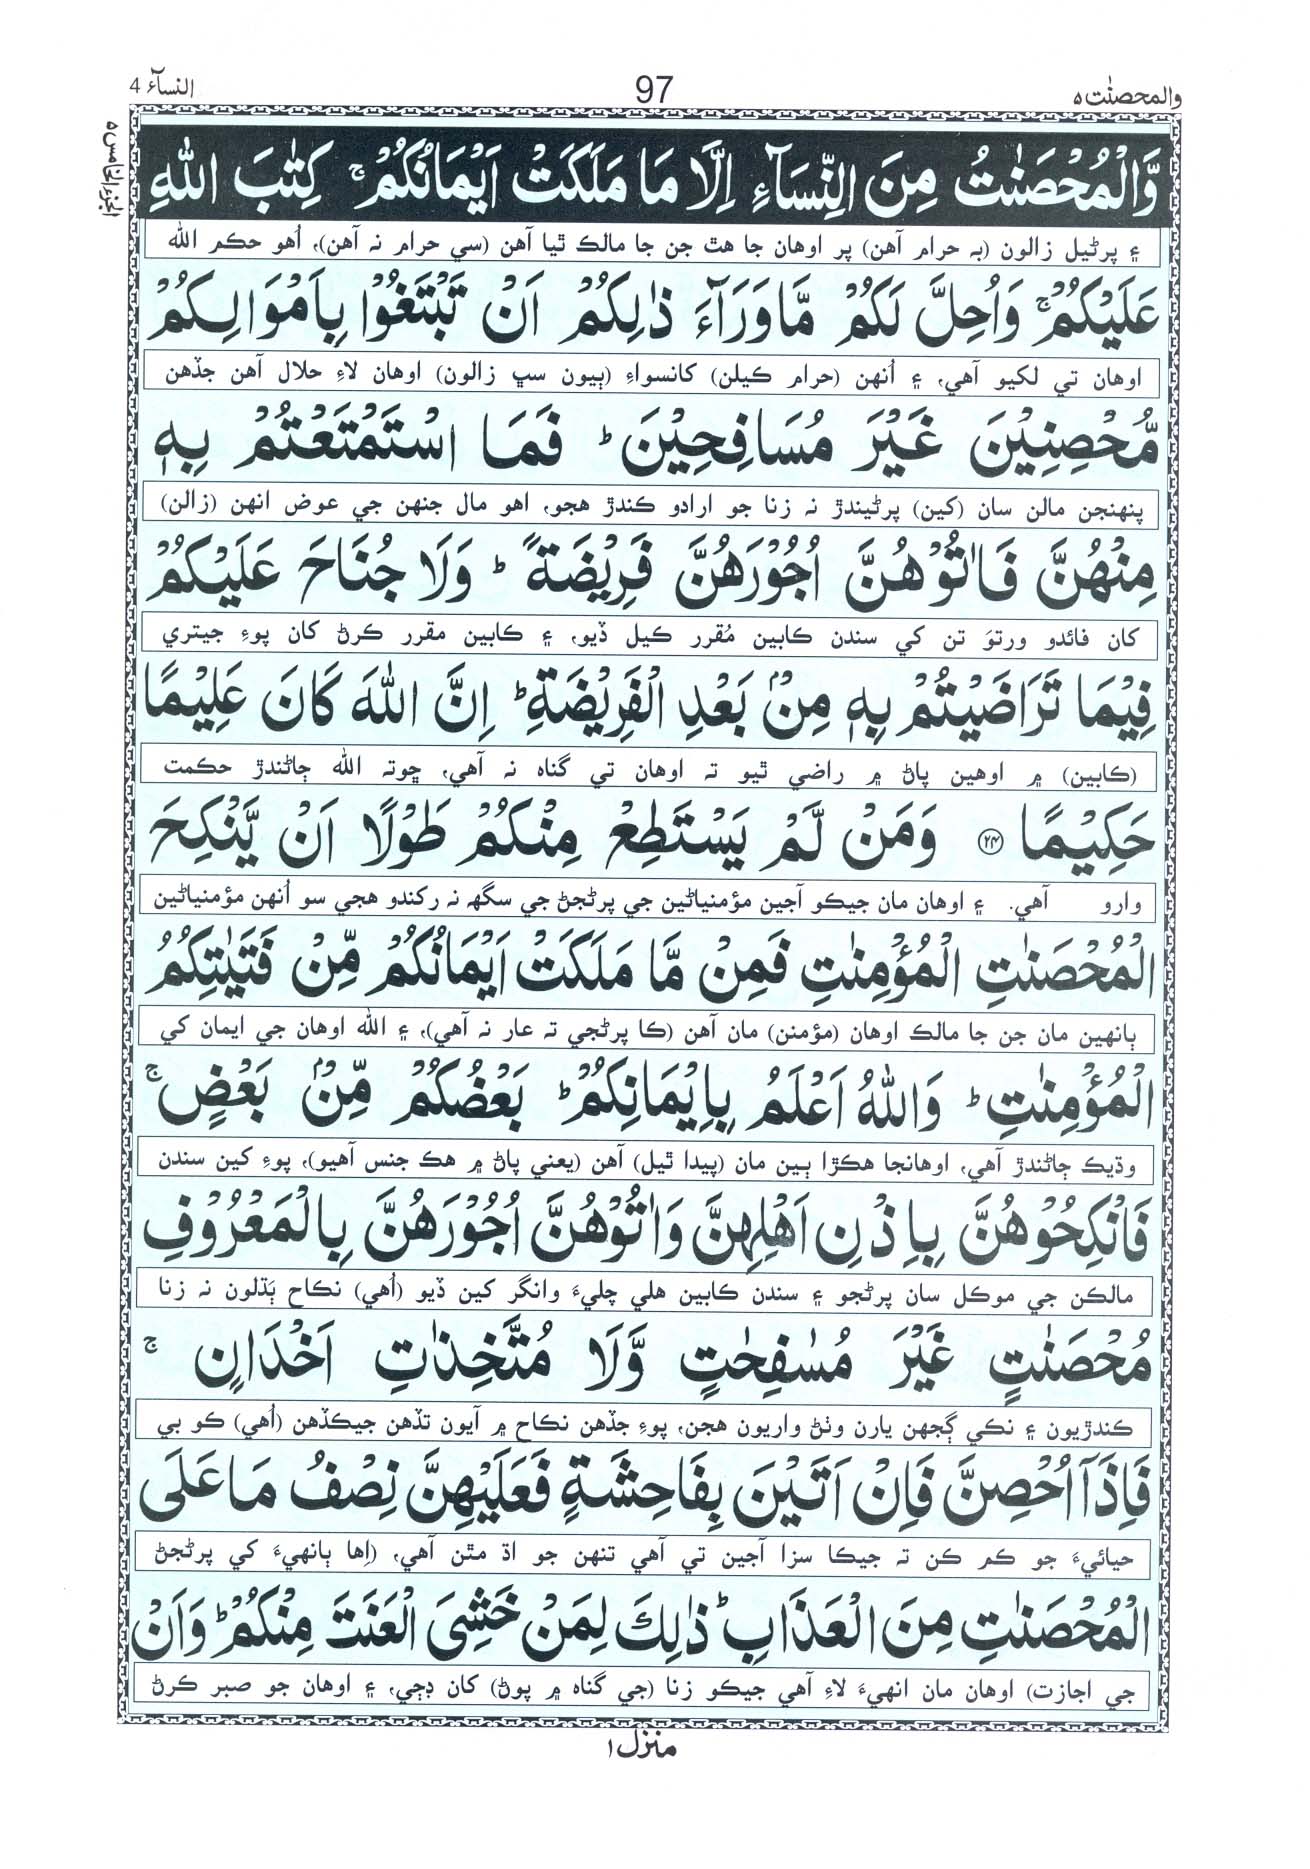 والمحصنٰت ٥
97
النسآء 4
الجزء الخامس ٥
وَّالْمُحْصَنٰتُ مِنَ النِّسَآءِ اِلَّا مَا مَلَكَتْ اَيْمَانُكُمْ ۚ كِتٰبَ اللّٰهِ
۽ پرڻيل زالون (به حرام آهن) پر اوهان جا هٿ جن جا مالڪ ٿيا آهن (سي حرام نہ آهن)، اُهو حڪم الله
عَلَيْكُمْ ۚ وَاُحِلَّ لَكُمْ مَّا وَرَآءَ ذٰلِكُمْ اَنْ تَبْتَغُوْا بِاَمْوَالِكُمْ
اوهان تي لکيو آهي، ۽ اُنهن (حرام ڪيلن) کانسواءِ (ٻيون سڀ زالون) اوهان لاءِ حلال آهن جڏهن
مُّحْصِنِيْنَ غَيْرَ مُسَافِحِيْنَ ؕ فَمَا اسْتَمْتَعْتُمْ بِهٖ
پنهنجن مالن سان (کين) پرڻيندڙ نہ زنا جو ارادو ڪندڙ هجو، اهو مال جنهن جي عوض انهن (زالن)
مِنْهُنَّ فَاٰتُوْهُنَّ اُجُوْرَهُنَّ فَرِيْضَةً ؕ وَلَا جُنَاحَ عَلَيْكُمْ
کان فائدو ورتوَ تن کي سندن ڪابين مُقرر ڪيل ڏيو، ۽ ڪابين مقرر ڪرڻ کان پوءِ جيتري
فِيْمَا تَرَاضَيْتُمْ بِهٖ مِنْۢ بَعْدِ الْفَرِيْضَةِ ؕ اِنَّ اللّٰهَ كَانَ عَلِيْمًا
(ڪابين) ۾ اوهين پاڻ ۾ راضي ٿيو تہ اوهان تي گناه نہ آهي، ڇوتہ الله ڄاڻندڙ حڪمت
حَكِيْمًا ۝۲۴ وَمَنْ لَّمْ يَسْتَطِعْ مِنْكُمْ طَوْلًا اَنْ يَّنْكِحَ
وارو آهي. ۽ اوهان مان جيڪو آجين مؤمنياڻين جي پرڻجڻ جي سگهہ نہ رکندو هجي سو اُنهن مؤمنياڻين
الْمُحْصَنٰتِ الْمُؤْمِنٰتِ فَمِنْ مَّا مَلَكَتْ اَيْمَانُكُمْ مِّنْ فَتَيٰتِكُمُ
ٻانهين مان جن جا مالڪ اوهان (مؤمنن) مان آهن (ڪا پرڻجي تہ عار نہ آهي)، ۽ الله اوهان جي ايمان کي
الْمُؤْمِنٰتِ ؕ وَاللّٰهُ اَعْلَمُ بِاِيْمَانِكُمْ ؕ بَعْضُكُمْ مِّنْۢ بَعْضٍ ۚ
وڌيڪ ڄاڻندڙ آهي، اوهانجا هڪڙا ٻين مان (پيدا ٿيل) آهن (يعني پاڻ ۾ هڪ جنس آهيو)، پوءِ کين سندن
فَانْكِحُوْهُنَّ بِاِذْنِ اَهْلِهِنَّ وَاٰتُوْهُنَّ اُجُوْرَهُنَّ بِالْمَعْرُوْفِ
مالڪن جي موڪل سان پرڻجو ۽ سندن ڪابين هلي چليءَ وانگر کين ڏيو (اُهي) نڪاح ٻَڌلون نہ زنا
مُحْصَنٰتٍ غَيْرَ مُسٰفِحٰتٍ وَّلَا مُتَّخِذٰتِ اَخْدَانٍ ۚ
ڪندڙيون ۽ نڪي ڳجهن يارن وٺڻ واريون هجن، پوءِ جڏهن نڪاح ۾ آيون تڏهن جيڪڏهن (اُهي) ڪو بي
فَاِذَآ اُحْصِنَّ فَاِنْ اَتَيْنَ بِفَاحِشَةٍ فَعَلَيْهِنَّ نِصْفُ مَا عَلَى
حيائيءَ جو ڪم ڪن تہ جيڪا سزا آجين تي آهي تنهن جو اڌ مٿن آهي، (اِها ٻانهيءَ کي پرڻجڻ
الْمُحْصَنٰتِ مِنَ الْعَذَابِ ؕ ذٰلِكَ لِمَنْ خَشِيَ الْعَنَتَ مِنْكُمْ ؕ وَاَنْ
جي اجازت) اوهان مان انهيءَ لاءِ آهي جيڪو زنا (جي گناه ۾ پوڻ) کان ڊڄي، ۽ اوهان جو صبر ڪرڻ
منزل ۱